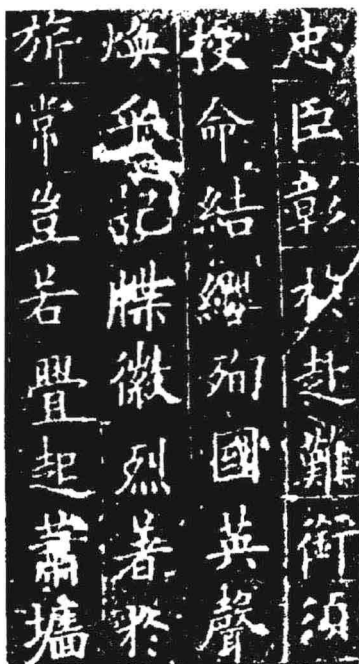 忠臣彰於赴難銜須
授命結纓殉國英聲
煥乎記牒徽烈著於
旂常豈若舋起蕭墻